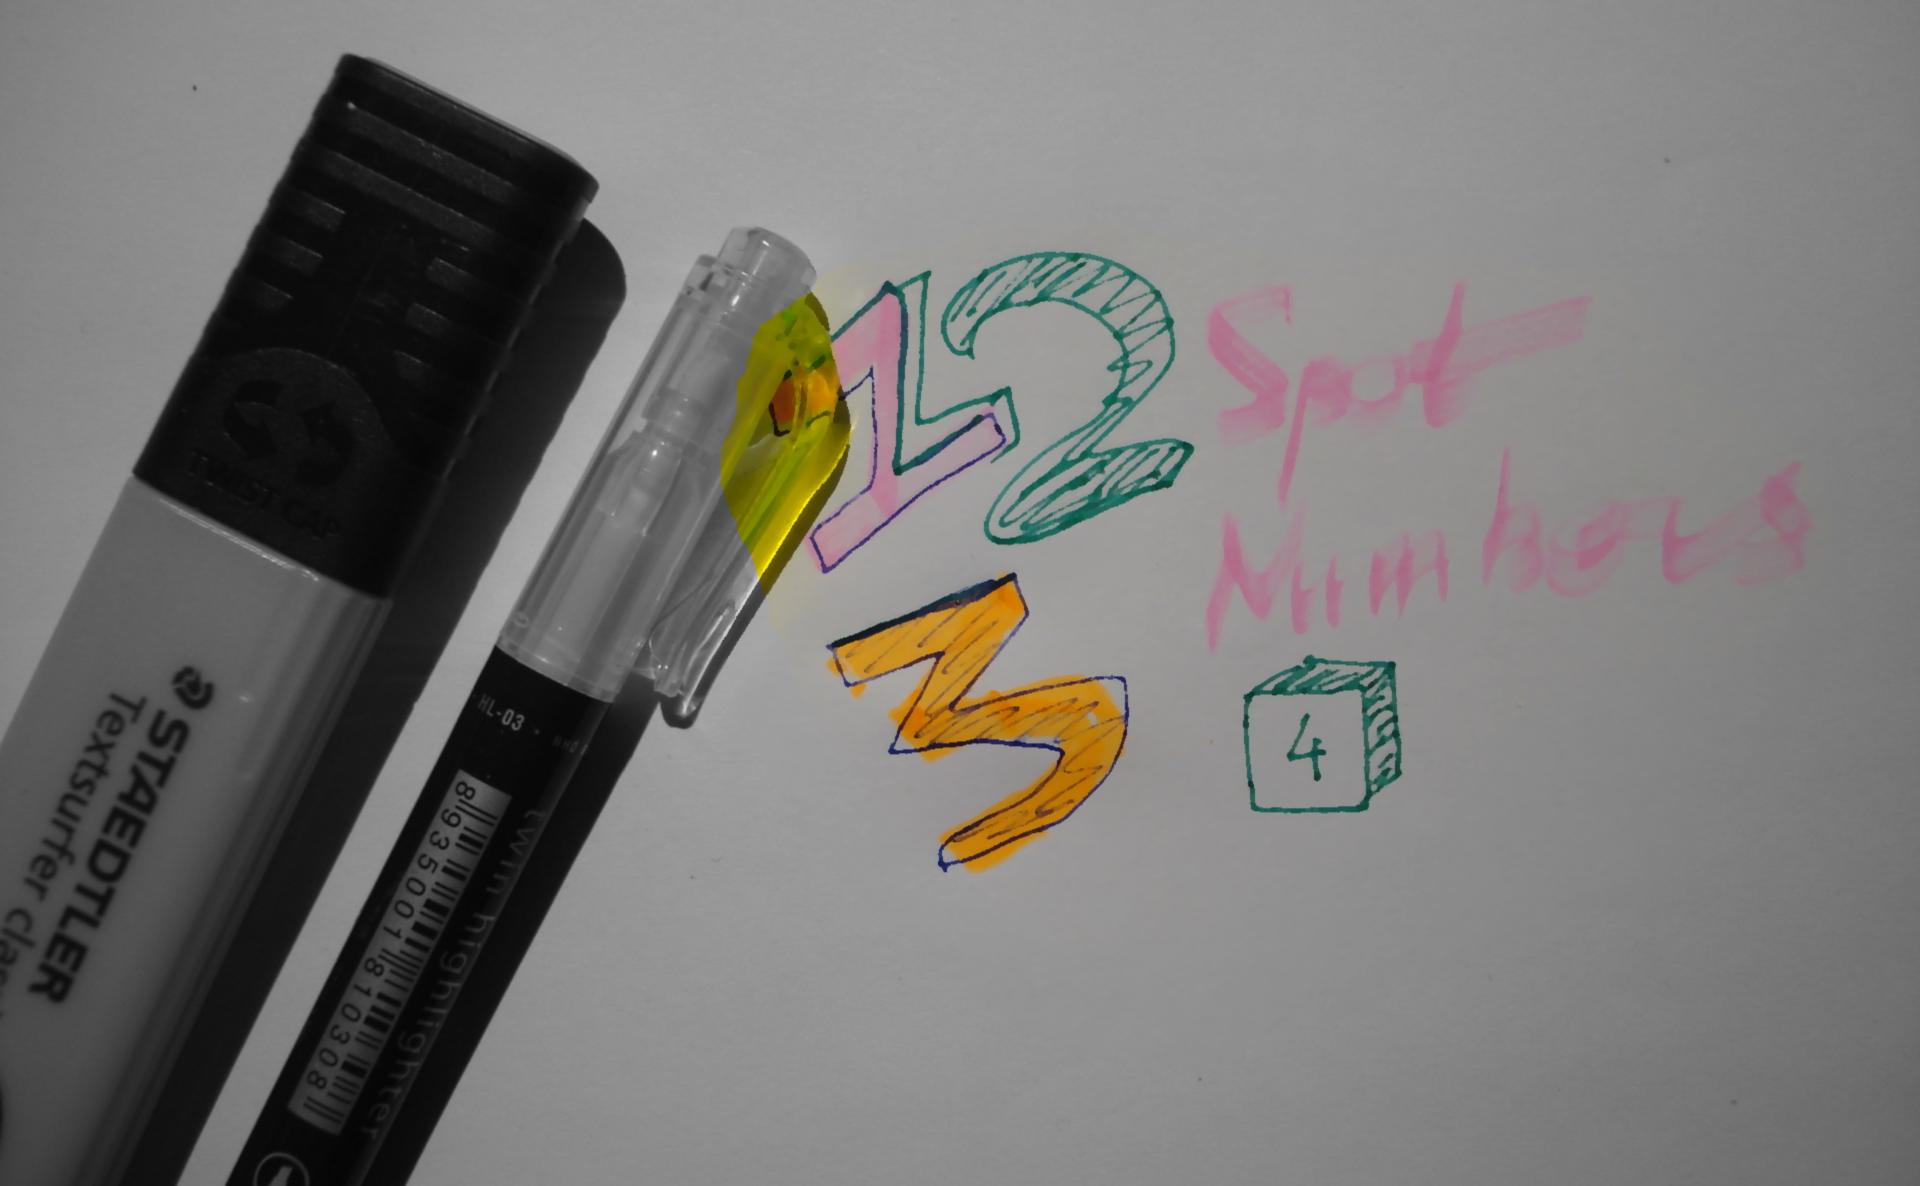 TWIST CAP
STAEDTLER
Textsurfer clas
HL-03
twin highlighter
8935001810308
1 2
3
Spot
Numbers
4